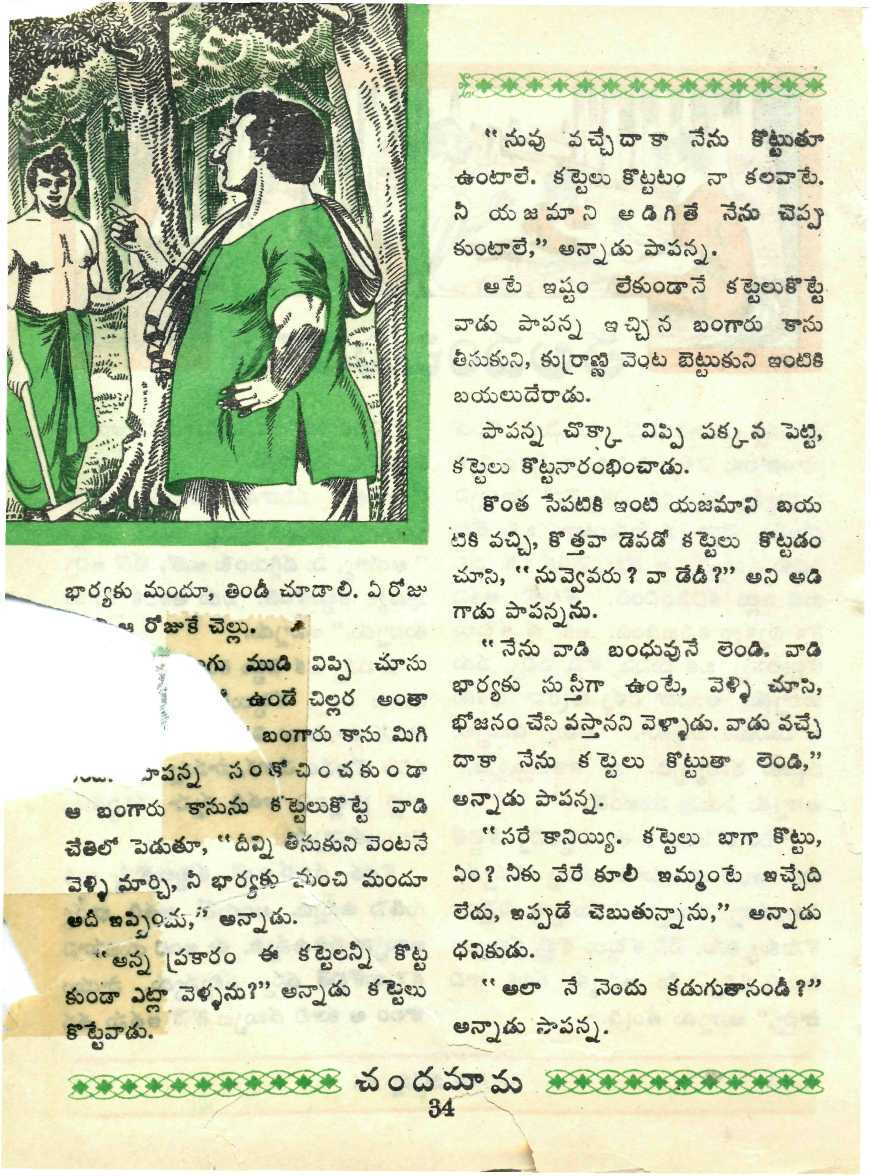 భార్యకు మందూ, తిండీ చూడాలి. ఏ రోజు
ఆ రోజుకే చెల్లు.
ముడి విప్పి చూసు
ఉండే చిల్లర అంతా
బంగారు కాసు మిగి
పాపన్న సంకోచించకుండా
ఆ బంగారు కాసును కట్టెలుకొట్టే వాడి
చేతిలో పెడుతూ, “దీన్ని తీసుకుని వెంటనే
వెళ్ళి మార్చి, నీ భార్యకు మంచి మందూ
అదీ ఇప్పించు,” అన్నాడు.
“అన్న ప్రకారం ఈ కట్టెలన్నీ కొట్ట
కుండా ఎట్లా వెళ్ళను?” అన్నాడు కట్టెలు
కొట్టేవాడు.
“నువు వచ్చేదాకా నేను కొట్టుతూ
ఉంటాలే. కట్టెలు కొట్టటం నా కలవాటే.
నీ యజమాని అడిగితే నేను చెప్పు
కుంటాలే,” అన్నాడు పాపన్న.
ఆటే ఇష్టం లేకుండానే కట్టెలుకొట్టే
వాడు పాపన్న ఇచ్చిన బంగారు కాసు
తీసుకుని, కుర్రాణ్ణి వెంట బెట్టుకుని ఇంటికి
బయలుదేరాడు.
పాపన్న చొక్కా విప్పి పక్కన పెట్టి,
కట్టెలు కొట్టనారంభించాడు.
కొంత సేపటికి ఇంటి యజమాని బయ
టికి వచ్చి, కొత్తవా డెవడో కట్టెలు కొట్టడం
చూసి, “నువ్వెవరు? వా డేడీ?” అని అడి
గాడు పాపన్నను.
“నేను వాడి బంధువునే లెండి. వాడి
భార్యకు సుస్తీగా ఉంటే, వెళ్ళి చూసి,
భోజనం చేసి వస్తానని వెళ్ళాడు. వాడు వచ్చే
దాకా నేను కట్టెలు కొట్టుతా లెండి,”
అన్నాడు పాపన్న.
“సరే కానియ్యి. కట్టెలు బాగా కొట్టు,
ఏం? నీకు వేరే కూలీ ఇమ్మంటే ఇచ్చేది
లేదు, ఇప్పుడే చెబుతున్నాను,” అన్నాడు
ధనికుడు.
“అలా నే నెందు కడుగుతానండీ?”
అన్నాడు పాపన్న.
చందమామ
34